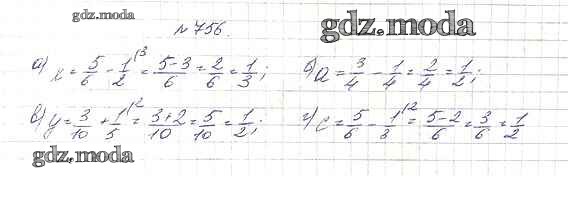 gdz.moda
№756.
gdz.moda
а) x = 5/6 - 1/2^(3 = (5-3)/6 = 2/6 = 1/3;
б) a = 3/4 - 1/4 = 2/4 = 1/2;
в) y = 3/10 + 1/5^(2 = (3+2)/10 = 5/10 = 1/2;
г) c = 5/6 - 1/3^(2 = (5-2)/6 = 3/6 = 1/2
gdz.moda